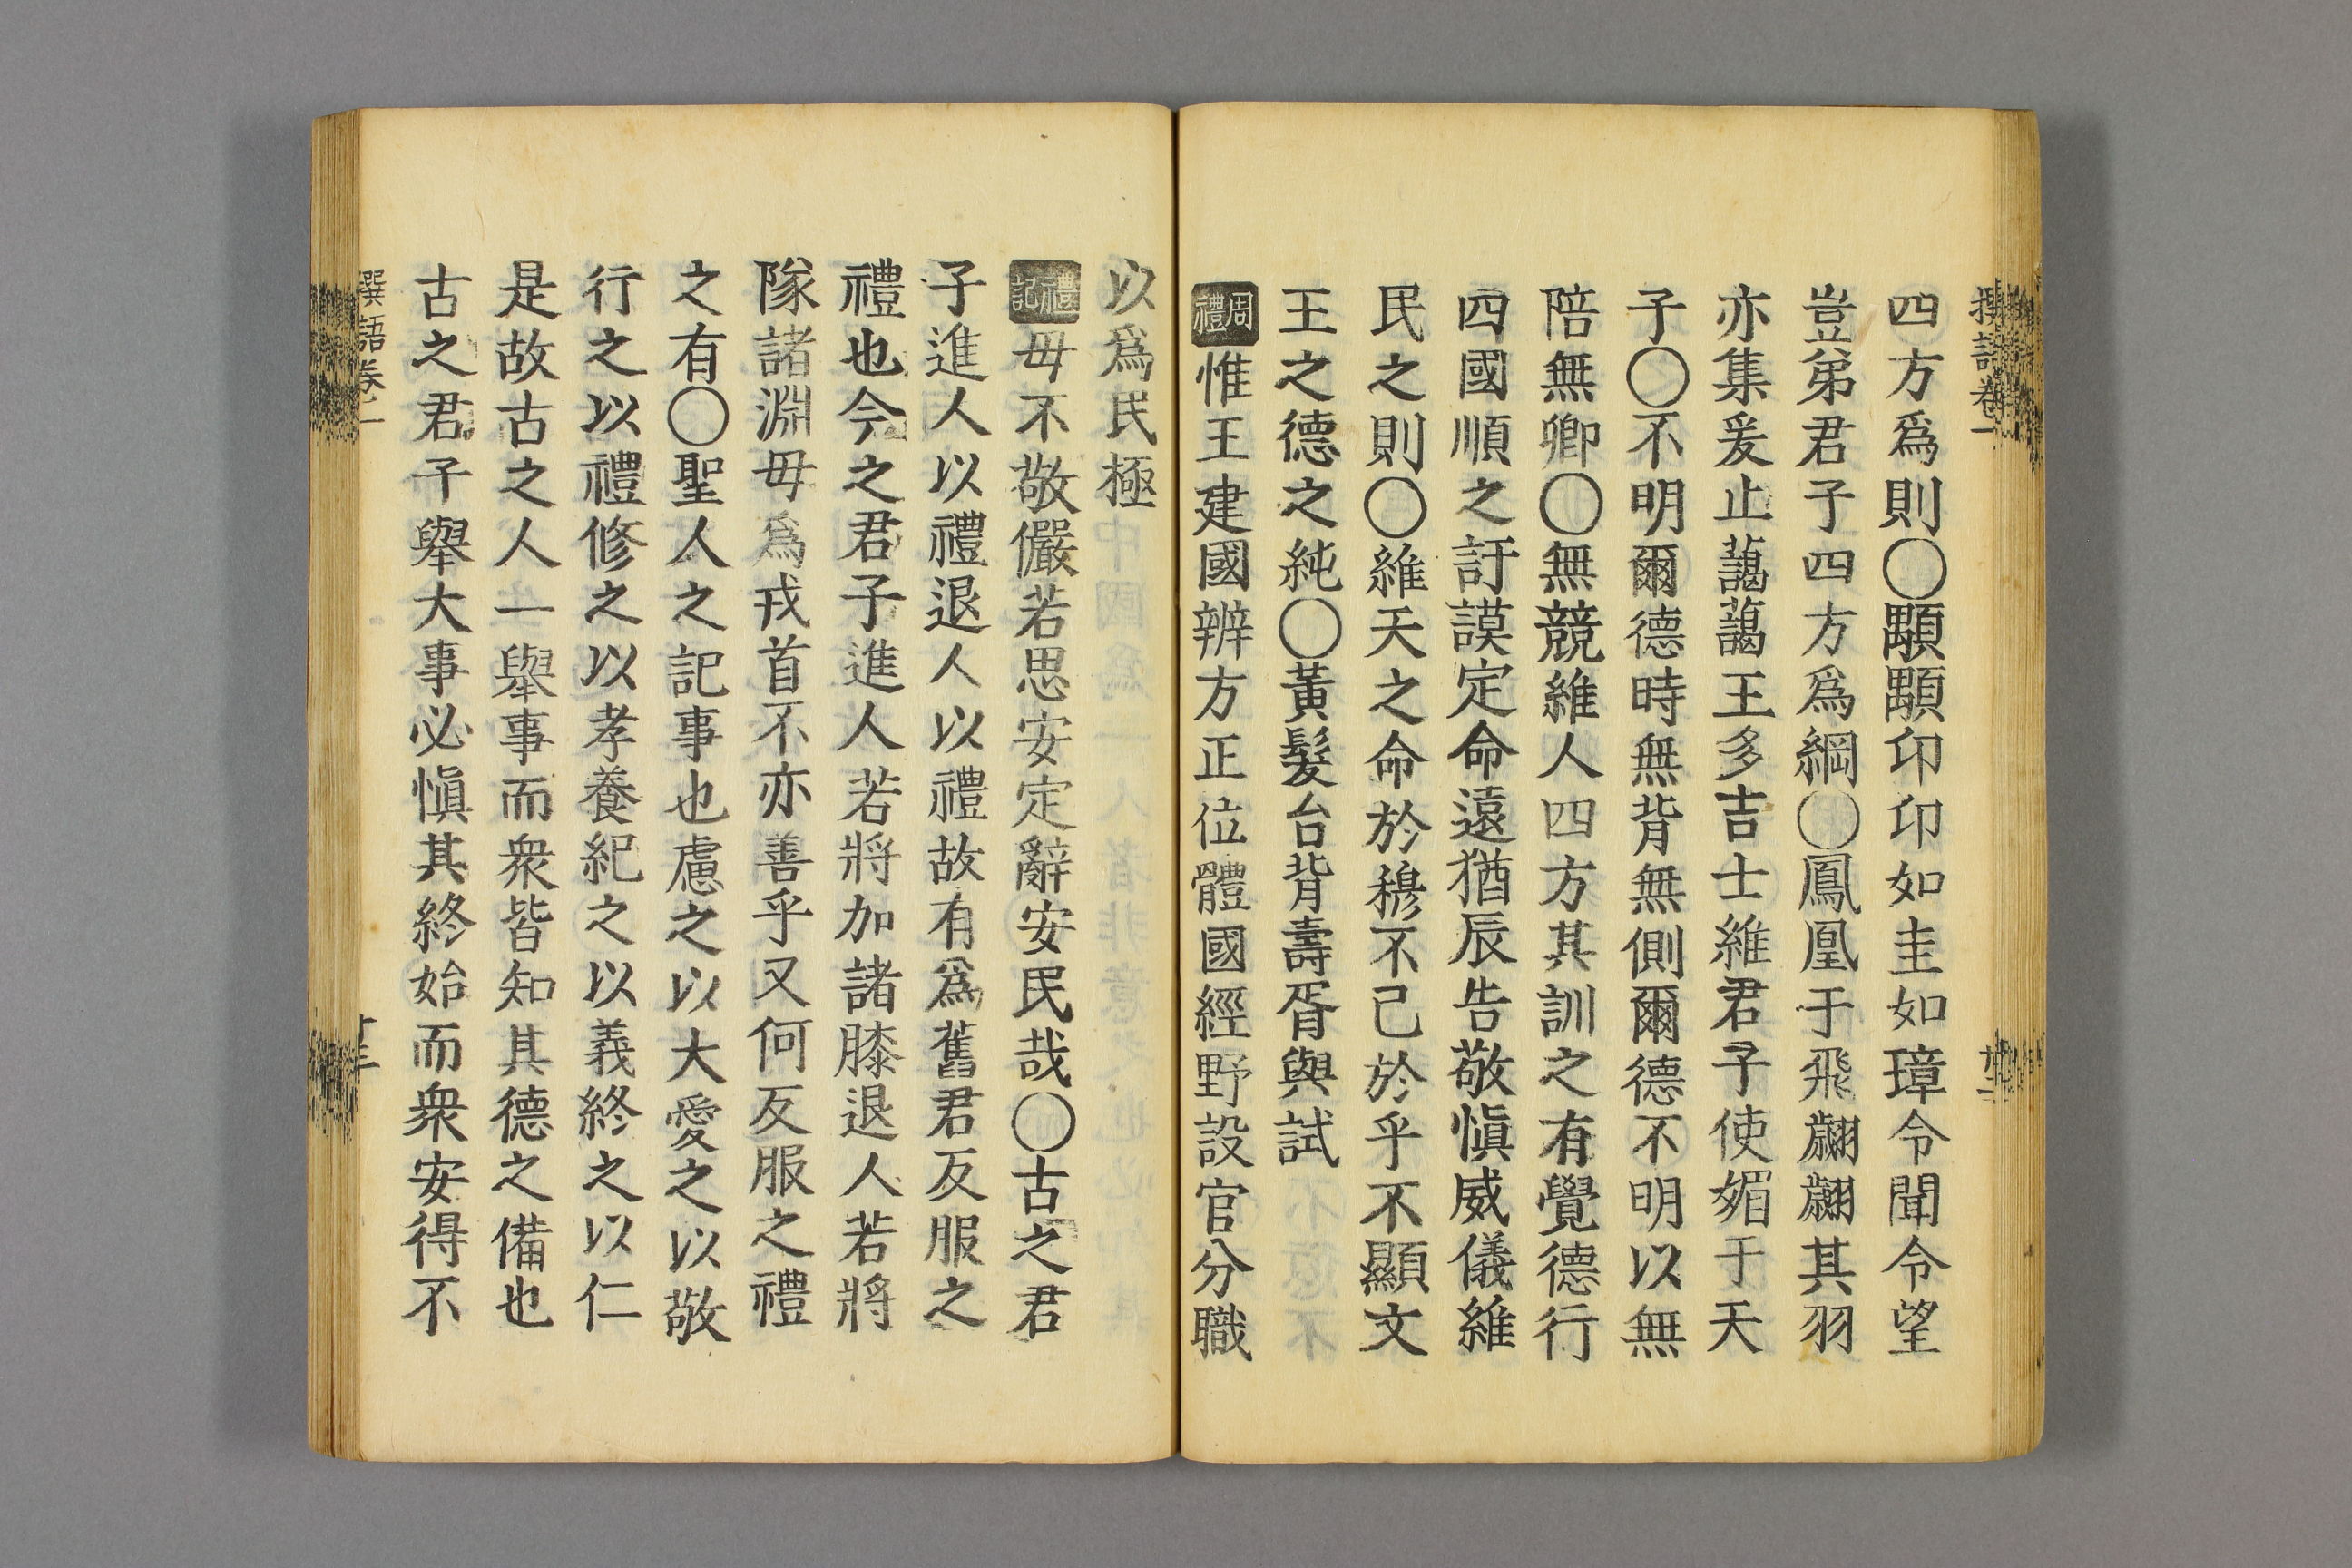 撰語卷一
四方爲則○顒顒卬卬如圭如璋令聞令望
豈弟君子四方爲綱○鳳凰于飛翽翽其羽
亦集爰止藹藹王多吉士維君子使媚于天
子○不明爾德時無背無側爾德不明以無
陪無卿○無競維人四方其訓之有覺德行
四國順之訏謨定命遠猶辰告敬愼威儀維
民之則○維天之命於穆不已於乎不顯文
王之德之純○黃髮台背壽胥與試
周禮惟王建國辨方正位體國經野設官分職
以爲民極
禮記毋不敬儼若思安定辭安民哉○古之君
子進人以禮退人以禮故有爲舊君反服之
禮也今之君子進人若將加諸膝退人若將
隊諸淵毋爲戎首不亦善乎又何反服之禮
之有○聖人之記事也慮之以大愛之以敬
行之以禮修之以孝養紀之以義終之以仁
是故古之人一擧事而衆皆知其德之備也
古之君子擧大事必愼其終始而衆安得不
撰語卷一
十三